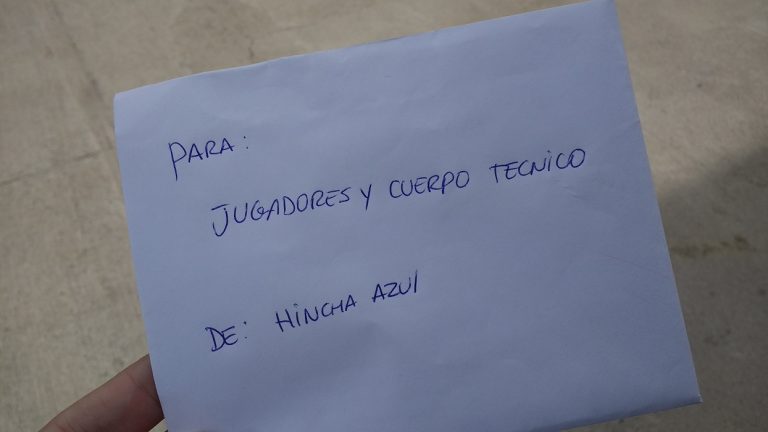 PARA:
JUGADORES Y CUERPO TECNICO
DE: HINCHA AZUl